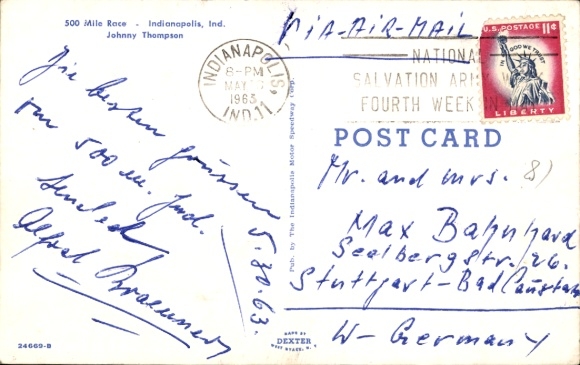 500 Mile Race - Indianapolis, Ind.
Johnny Thompson
Die besten Grüssen
vom 500 m. Ind.
sendet
Alfred
5.30.63.
24669-B
Pub. by The Indianapolis Motor Speedway Corp.
VIA-AIR-MAIL
INDIANAPOLIS,
6-PM
MAY
1963
IND. 11
NATIONAL
SALVATION ARMY
FOURTH WEEK
U.S. POSTAGE 11¢
IN GOD WE TRUST
LIBERTY
POST CARD
Mr. and Mrs. 8)
Max Bahnhard
Seelbergstr. 26.
Stuttgart-Bad Canstatt
W-Germany
MADE BY
DEXTER
WEST NYACK, N. Y.